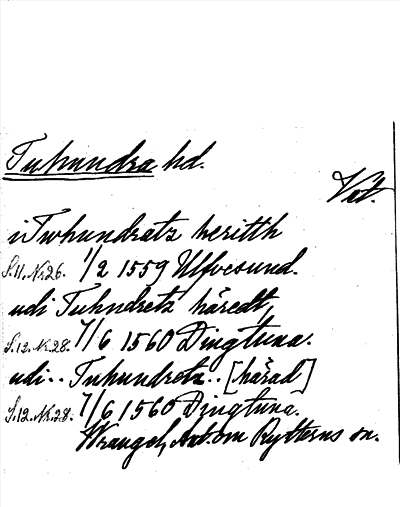 Tuhundra hd.
Vst.
i Twhundratz heritth
S.11.Nr.26. 1/2 1559 Ulfvesund.
udi Tuhndretz häredt,
S.12.Nr.28. 7/6 1560 Dingtuna.
udi.. Tuhundretz.. [härad]
S.12.Nr.28. 7/6 1560 Dingtuna.
Wrangel, Ant. om Rytterns sn.